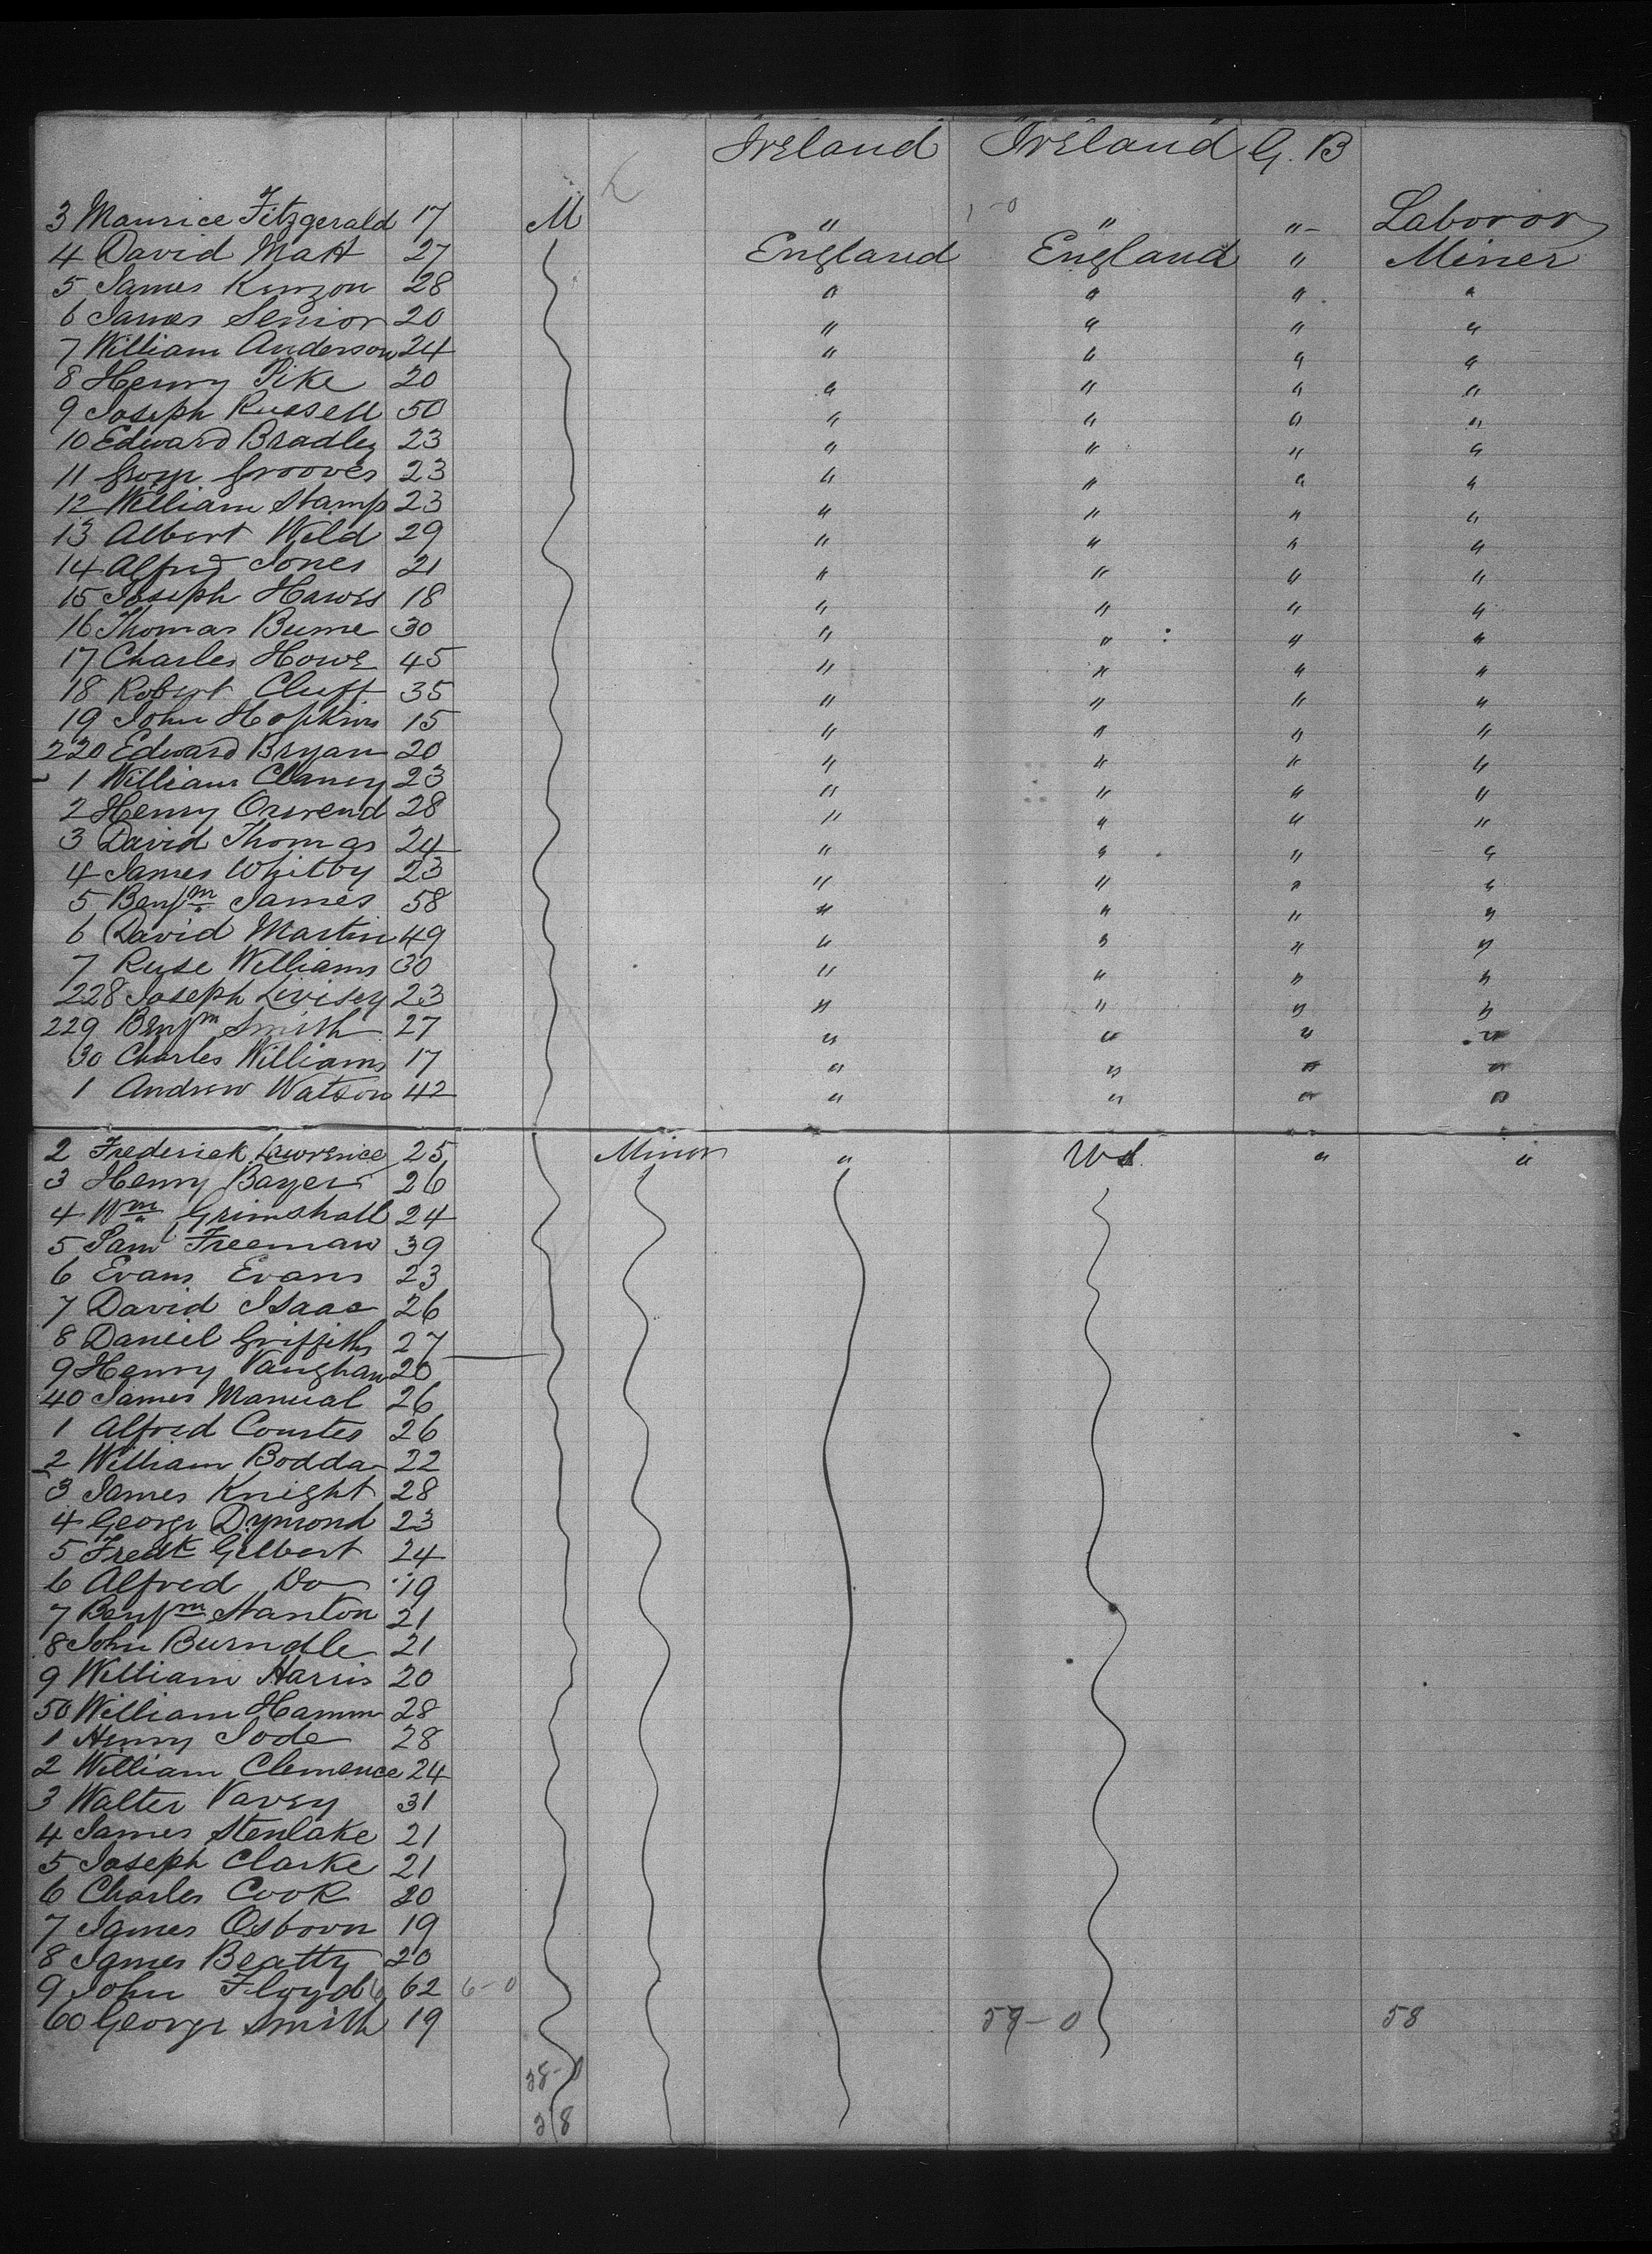 Ireland Ireland G. B
3 Maurice Fitzgerald 17 M " 1-0 " " Laboror
4 David Matt 27 England England " Miner
5 James Kinzon 28 " " " "
6 James Senior 20 " " " "
7 William Anderson 24 " " " "
8 Henry Pike 20 " " " "
9 Joseph Russell 50 " " " "
10 Edward Bradley 23 " " " "
11 Grooves 23 " " " "
12 William Stamp 23 " " " "
13 Albert Weld 29 " " " "
14 Alfred Jones 21 " " " "
15 Joseph Hawes 18 " " " "
16 Thomas Burne 30 " " " "
17 Charles Howe 45 " " " "
18 Robert Cluff 35 " " " "
19 John Hopkins 15 " " " "
220 Edward Bryan 20 " " " "
1 William Clancy 23 " " " "
2 Henry 28 " " " "
3 David Thomas 24 " " " "
4 James Whitby 23 " " " "
5 Benjm James 58 " " " "
6 David Martin 49 " " " "
7 Ruse Williams 30 " " " "
228 Joseph Livisey 23 " " " "
229 Benjm Smith 27 " " " "
30 Charles Williams 17 " " " "
1 Andrew Watson 42 " " " "
2 Frederick Lawrence 25 Minor " Wd. " "
3 Henry Bayer 26
4 Wm Grimshall 24
5 Saml Freeman 39
6 Evans Evans 23
7 David Isaac 26
8 Daniel Griffiths 27
9 Henry Vaughan 20
40 James Manual 26
1 Alfred Courtes 26
2 William Bodda 22
3 James Knight 28
4 George Dymond 23
5 Fredk Gilbert 24
6 Alfred Do 19
7 Benjm Stanton 21
8 John Burndle 21
9 William Harris 20
50 William Hamm 28
1 Henry Jode 28
2 William Clemence 24
3 Walter Vavey 31
4 James Stenlake 21
5 Joseph Clarke 21
6 Charles Cook 20
7 James Osborn 19
8 James Beatty 20
9 John Floyd 62 6-0
60 George Smith 19 59-0 58